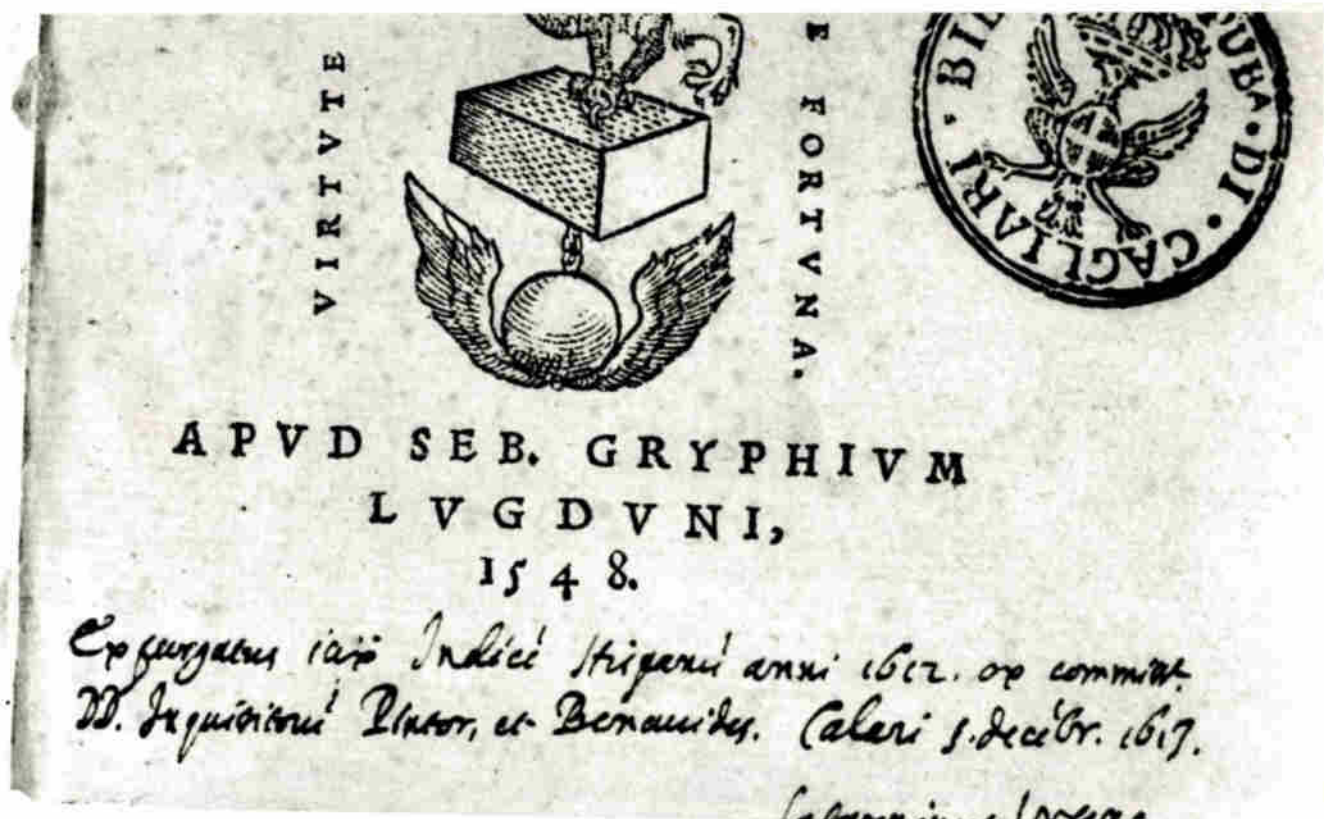 VIRTVTE
E FORTVNA.
BIL UBA · DI · CAGLIARI ·
APVD SEB. GRYPHIVM
LVGDVNI,
1548.
Expurgatus iuxͣ Indicé Hispanú anni 1612. ex commiss.
DD. Inquisitorú Pintor, et Benauides. Calari 5. decébr. 1617.